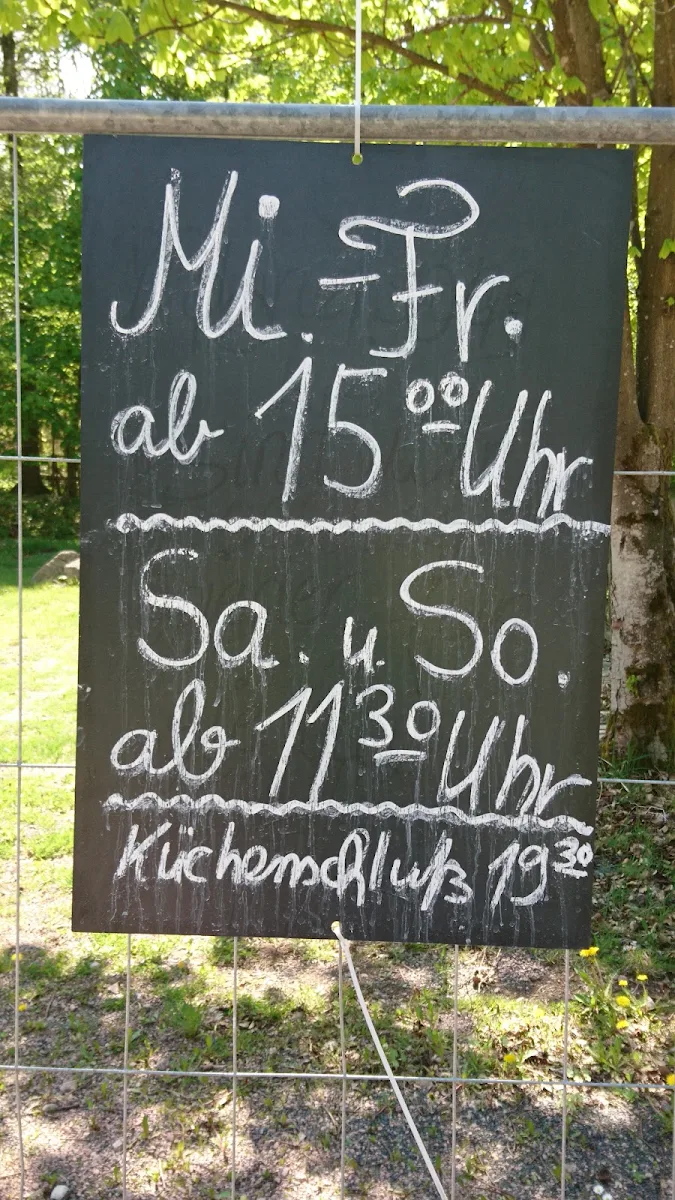 Mi.-Fr.
ab 15⁰⁰ Uhr
Sa. u. So.
ab 11³⁰ Uhr
Küchenschluß 19³⁰